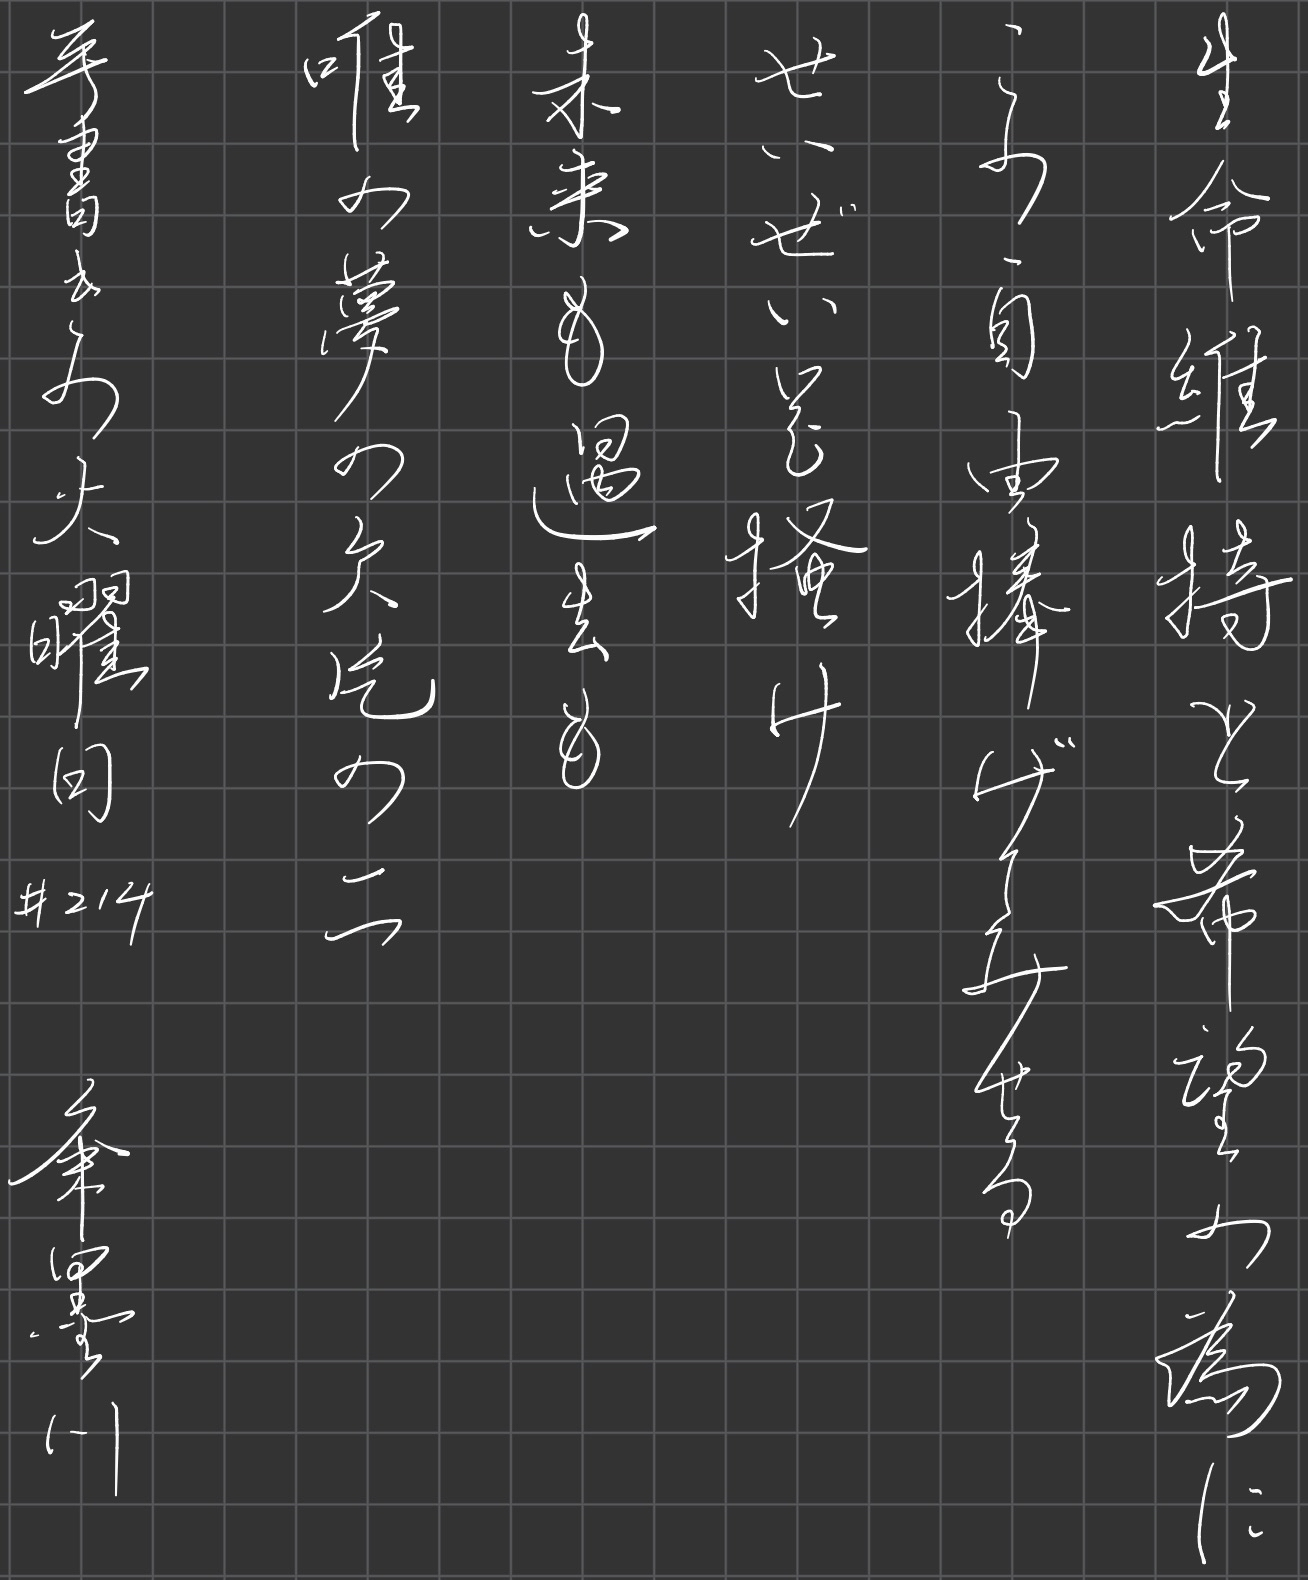 生命維持と希望の為に
自由捧げてみせる
せいぜい足掻け
未来も過去も
唯の夢の欠片の二
手書きする火曜日 #214 墨川